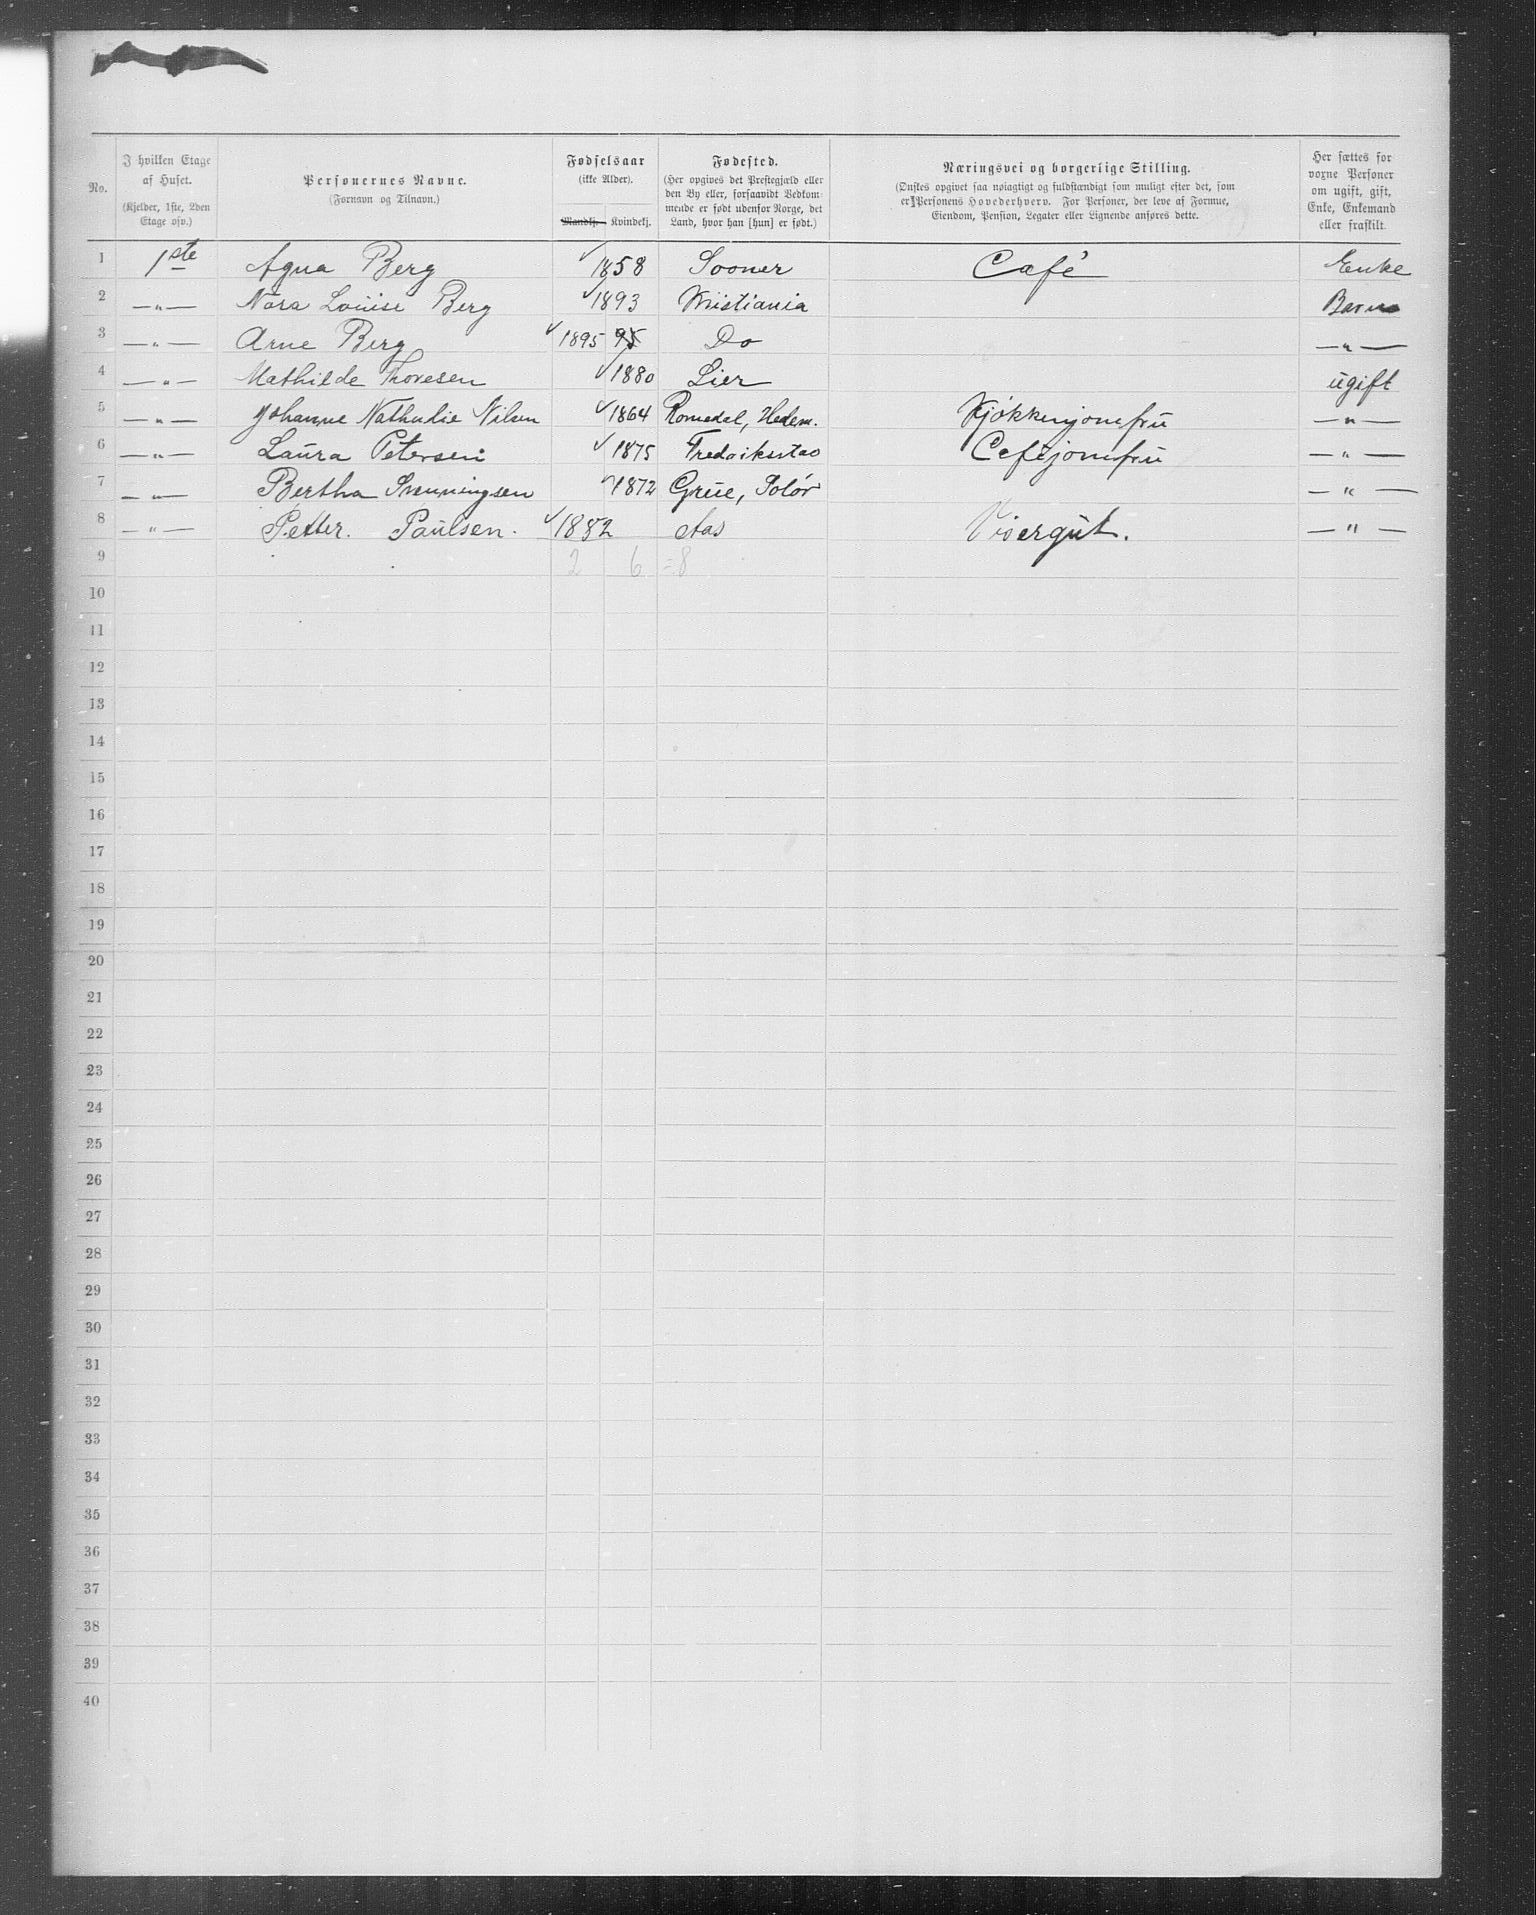 No.
I hvilken Etage af Huset.
(Kjelder, 1ste, 2den Etage osv.)
Personernes Navne.
(Fornavn og Tilnavn.)
Fødselsaar
(ikke Alder).
Mandkj.
Kvindekj.
Fødested.
(Her opgives det Præstegjæld eller
den By eller, forsaavidt Vedkom-
mende er født udenfor Norge, det
Land, hvor han [hun] er født.)
Næringsvei og borgerlige Stilling.
(Ønskes opgivet saa nøiagtigt og fuldstændigt som muligt efter det, som
er Personens Hovederhverv. For Personer, der leve af Formue,
Eiendom, Pension, Legater eller Lignende anføres dette.
Her sættes for
voxne Personer
om ugift, gift,
Enke, Enkemand
eller fraskilt.
1 1ste Agna Berg 1858 Sooner Café Enke
2 —„— Nora Louise Berg 1893 Kristiania Barn
3 —„— Arne Berg 1895 95 Do —„—
4 —„— Mathilde Thoresen 1880 Lier ugift
5 —„— Johanne Nathalie Nilsen 1864 Romedal, Hedem. Kjøkkenjomfru —„—
6 —„— Laura Petersen 1875 Fredriksstad Cafejomfru —„—
7 —„— Bertha Svenningsen 1872 Grue, Solør —„—
8 —„— Petter. Paulsen. 1882 Aas Visergut. —„—
9 2 6 =8
10
11
12
13
14
15
16
17
18
19
20
21
22
23
24
25
26
27
28
29
30
31
32
33
34
35
36
37
38
39
40